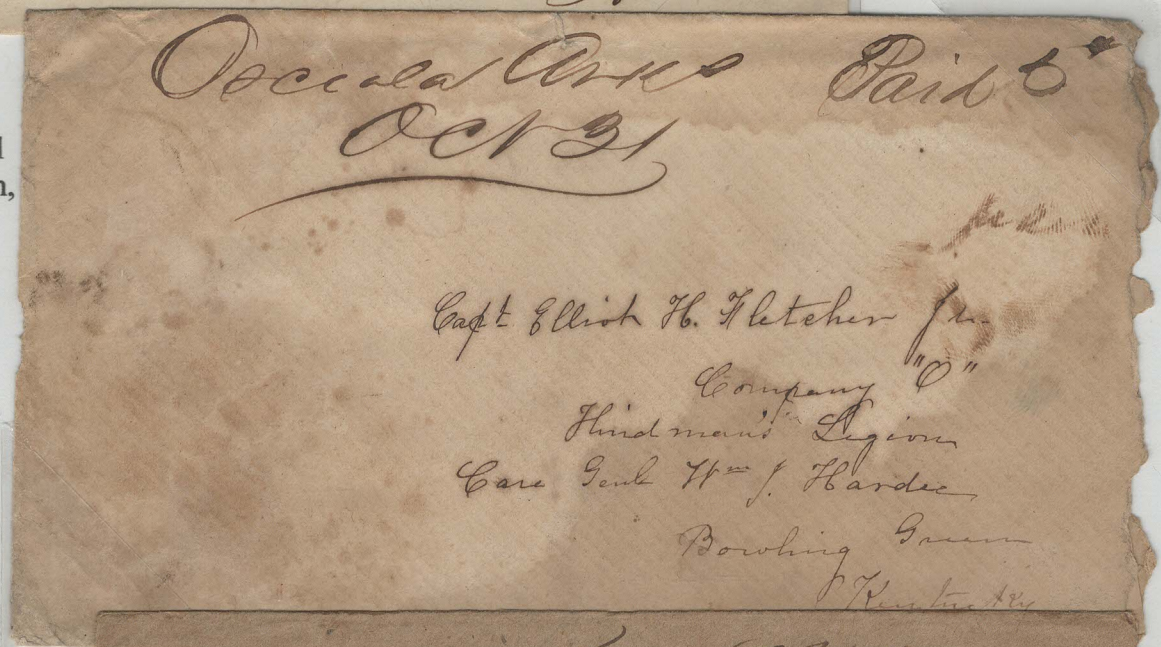 Osceola Arks Paid 5
Oct 31
Capt Elliott H. Fletcher Jr.
Company "C"
Hindman's Legion
Care Genl Wm J. Hardee
Bowling Green
Kentucky